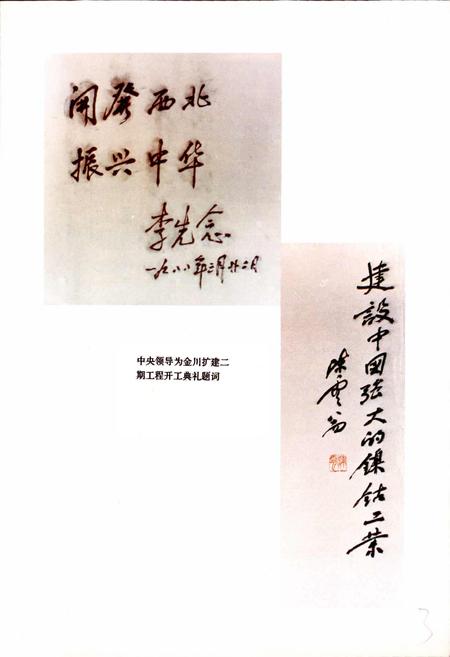 開發西北
振兴中华
李先念
一九八八年三月廿二日
中央领导为金川扩建二
期工程开工典礼题词
建設中國强大的鎳鈷工業
陈雲
3